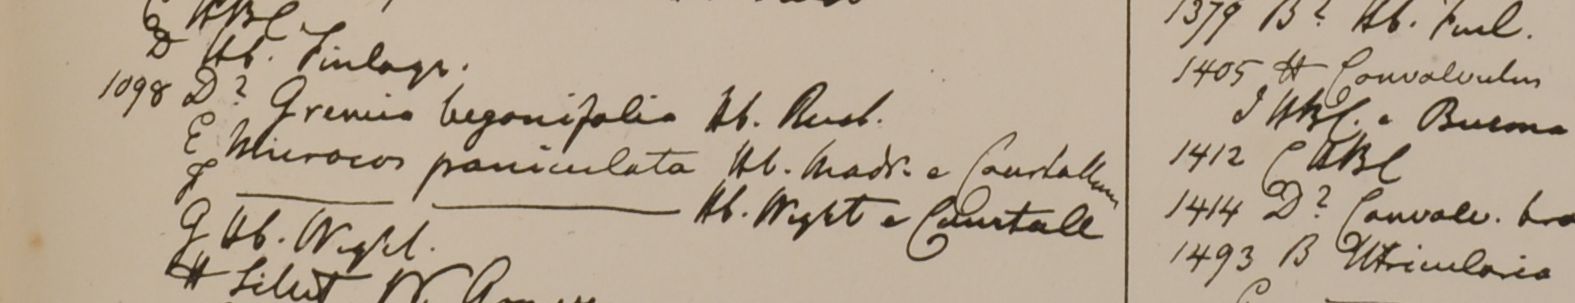 C HBC
D Hb. Finlays.
1098 D? Grewia begonifolia Hb. Russ.
E Microcos paniculata Hb. Madr. e Courtallum
F ——— ——— Hb. Wight e Courtall
G Hb. Wight.
H Silhet W. Gomez
1379 B? Hb. Finl.
1405 H Convolvulus
I HBC. e Burma
1412 C HBC
1414 D? Convolv.
1493 B Utricularia